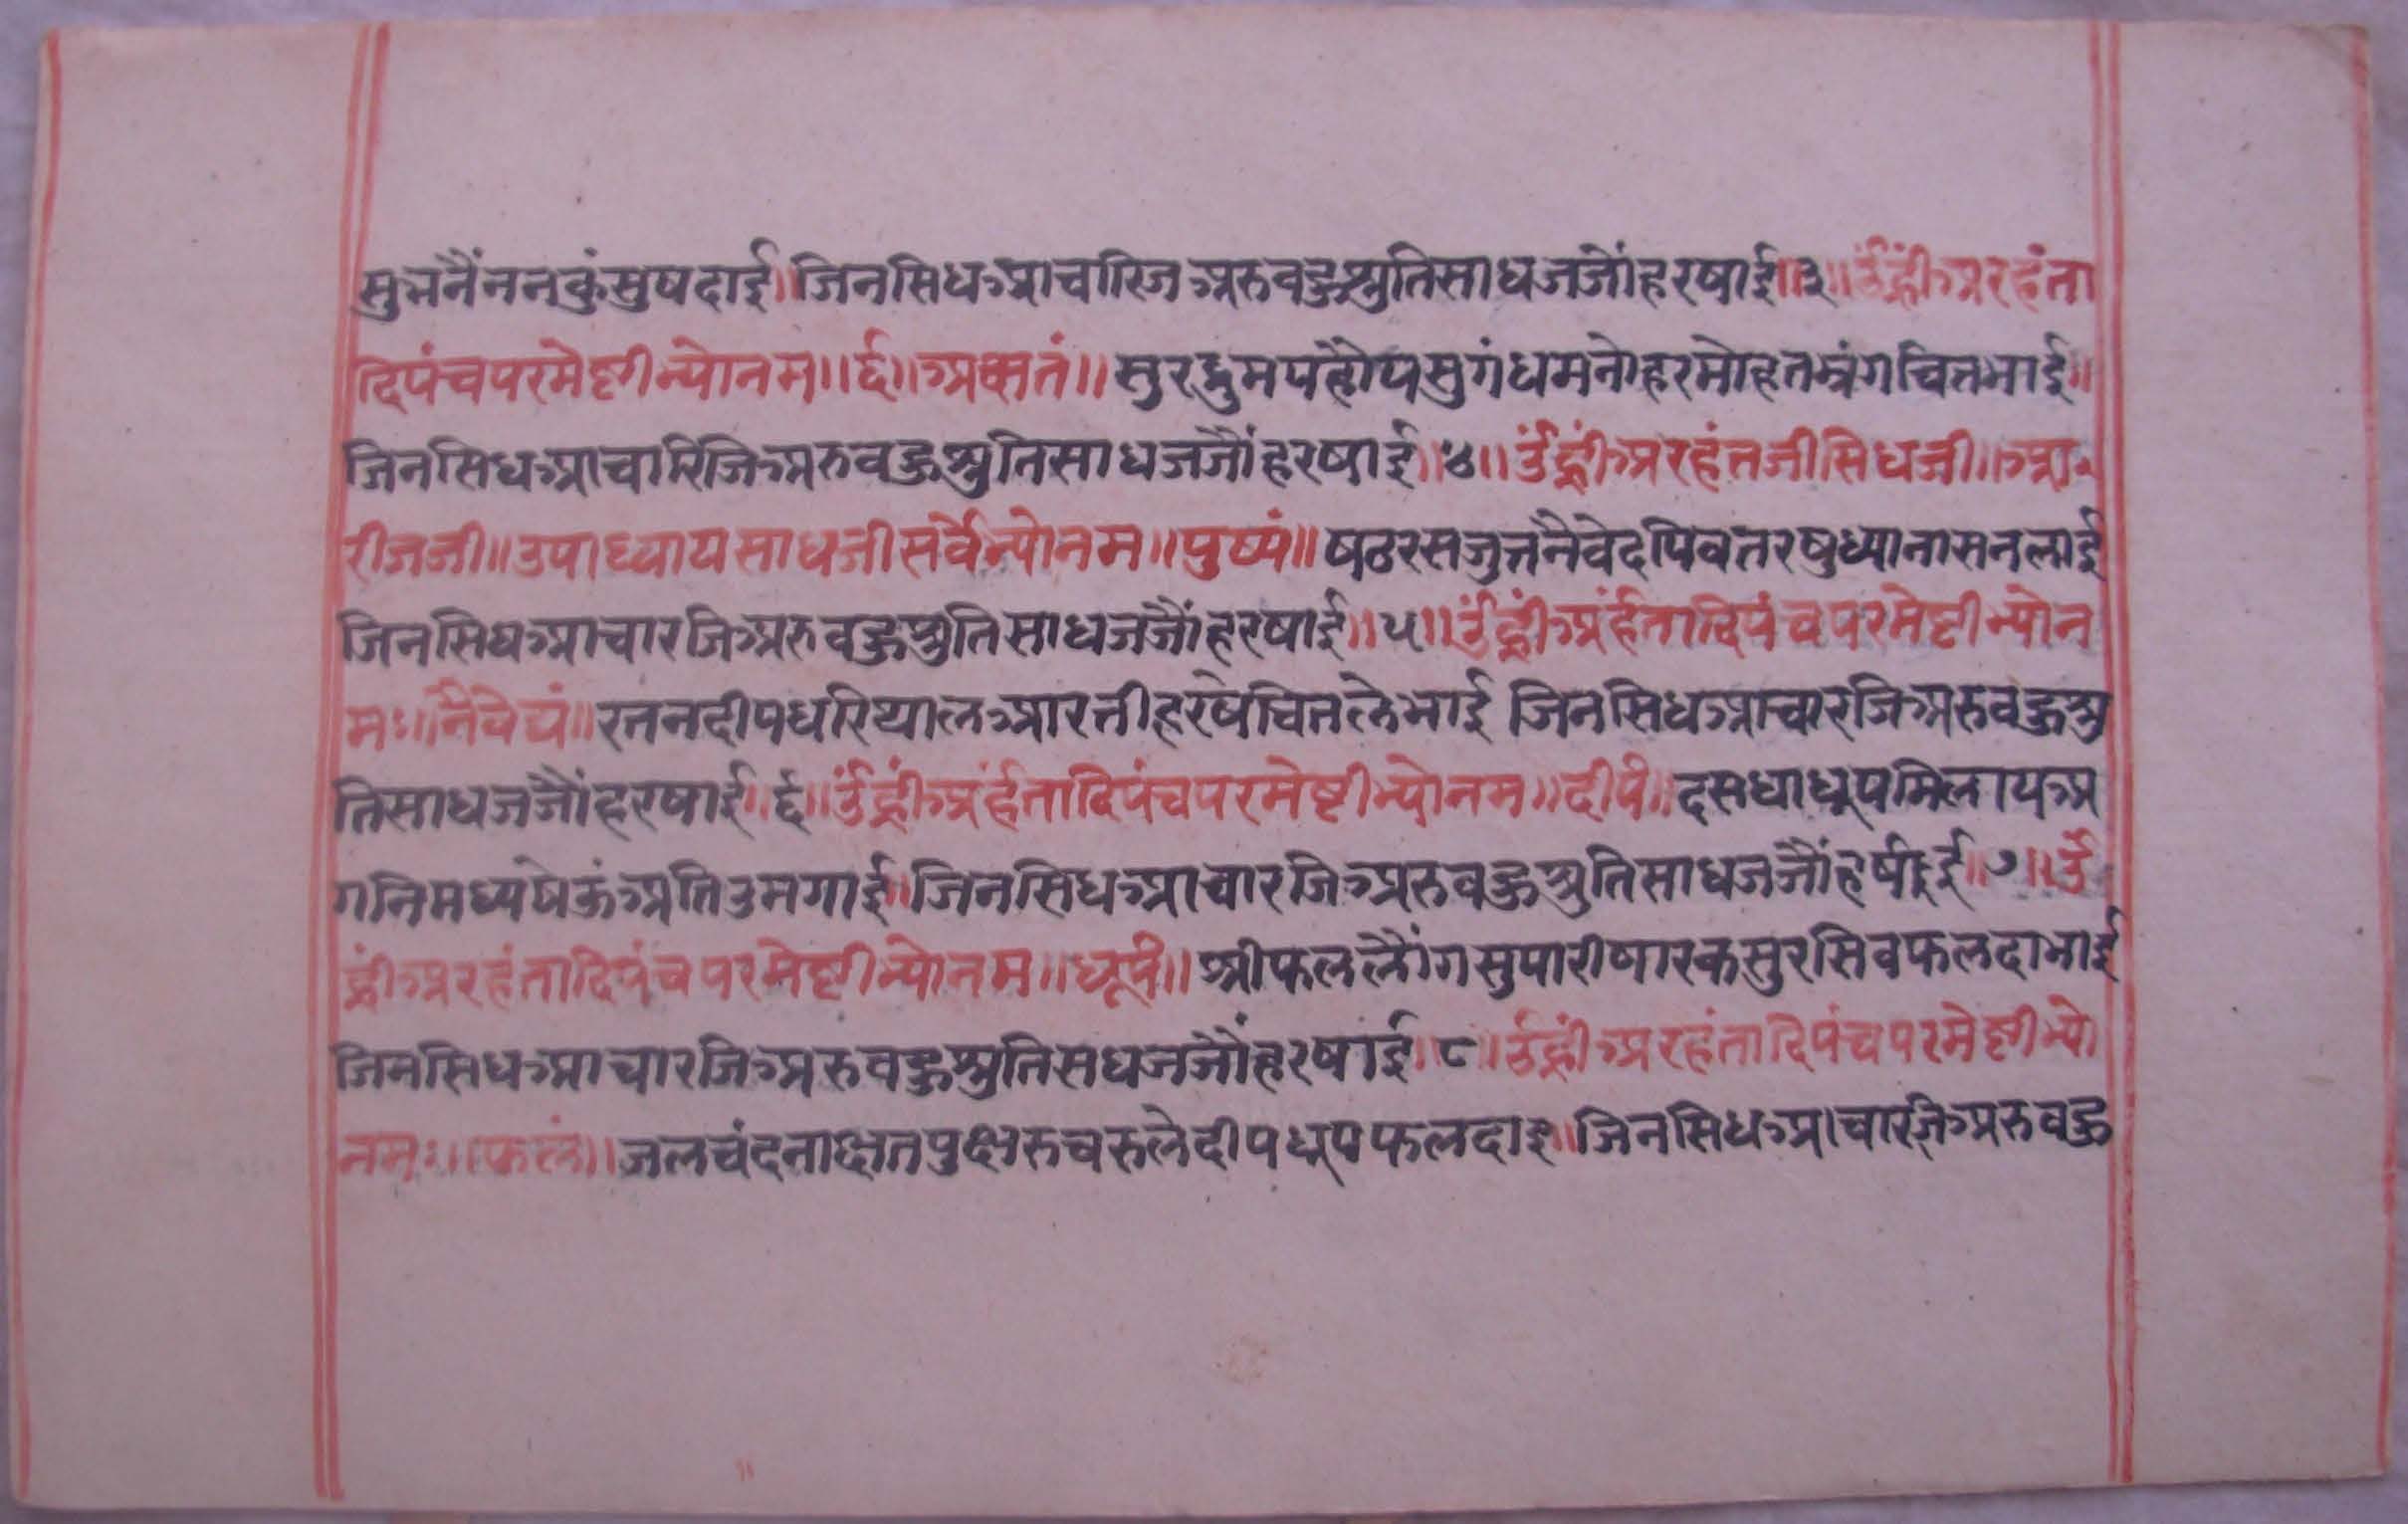 सुभनैंननकुंसुषदाई॥जिनसिधआचारिजअरुवहुश्रुतिसाधजजौंहरषाई॥३॥उँह्रींअरहंता
दिपंचपरमेष्टीभ्योनम॥र्द॥अक्षतं॥सुरद्रुमपहौपसुगंधमनोहरमोहतभ्रंगचितभाई॥
जिनसिधआचारिजिअरुवहुश्रुतिसाधजजौंहरषाई॥४॥उँह्रींअरहंतजीसिधजी॥आचा
रीजजी॥उपाध्यायसाधजीसर्वेभ्योनम॥पुष्पं॥षठरसजुतनैवेदपिवतरषुध्यानासनलाई
जिनसिधआचारजिअरुवहुश्रुतिसाधजजौंहरषाई॥५॥उँह्रींअर्हंतादिपंचपरमेष्टीभ्योन
मः॥नैवेद्यं॥रतनदीपधरिथालआरतीहरषेचितलेभाई जिनसिधआचारजिअरुवहुश्रु
तिसाधजजौंहरषाई॥६॥उँह्रींअर्हंतादिपंचपरमेष्टीभ्योनम॥दीपं॥दसधाधूपमिलायअ
गनिमध्यषेऊंअतिउमगाई॥जिनसिधआचारजिअरुवहुश्रुतिसाधजजौंहर्षाई॥७॥उँ
ह्रींअरहंतादिपंचपरमेष्टीभ्योनम॥धूपं॥श्रीफललौंगसुपारीषारकसुरसिवफलदाभाई
जिनसिधआचारजिअरुवहुश्रुतिसधजजौंहरषाई॥८॥उँह्रींअरहंतादिपंचपरमेष्टीभ्यो
नमः॥फलं॥जलचंदनाक्षतपुक्षरुचरुलेदीपधूपफलदाइ॥जिनसिधआचारजिअरुवहु